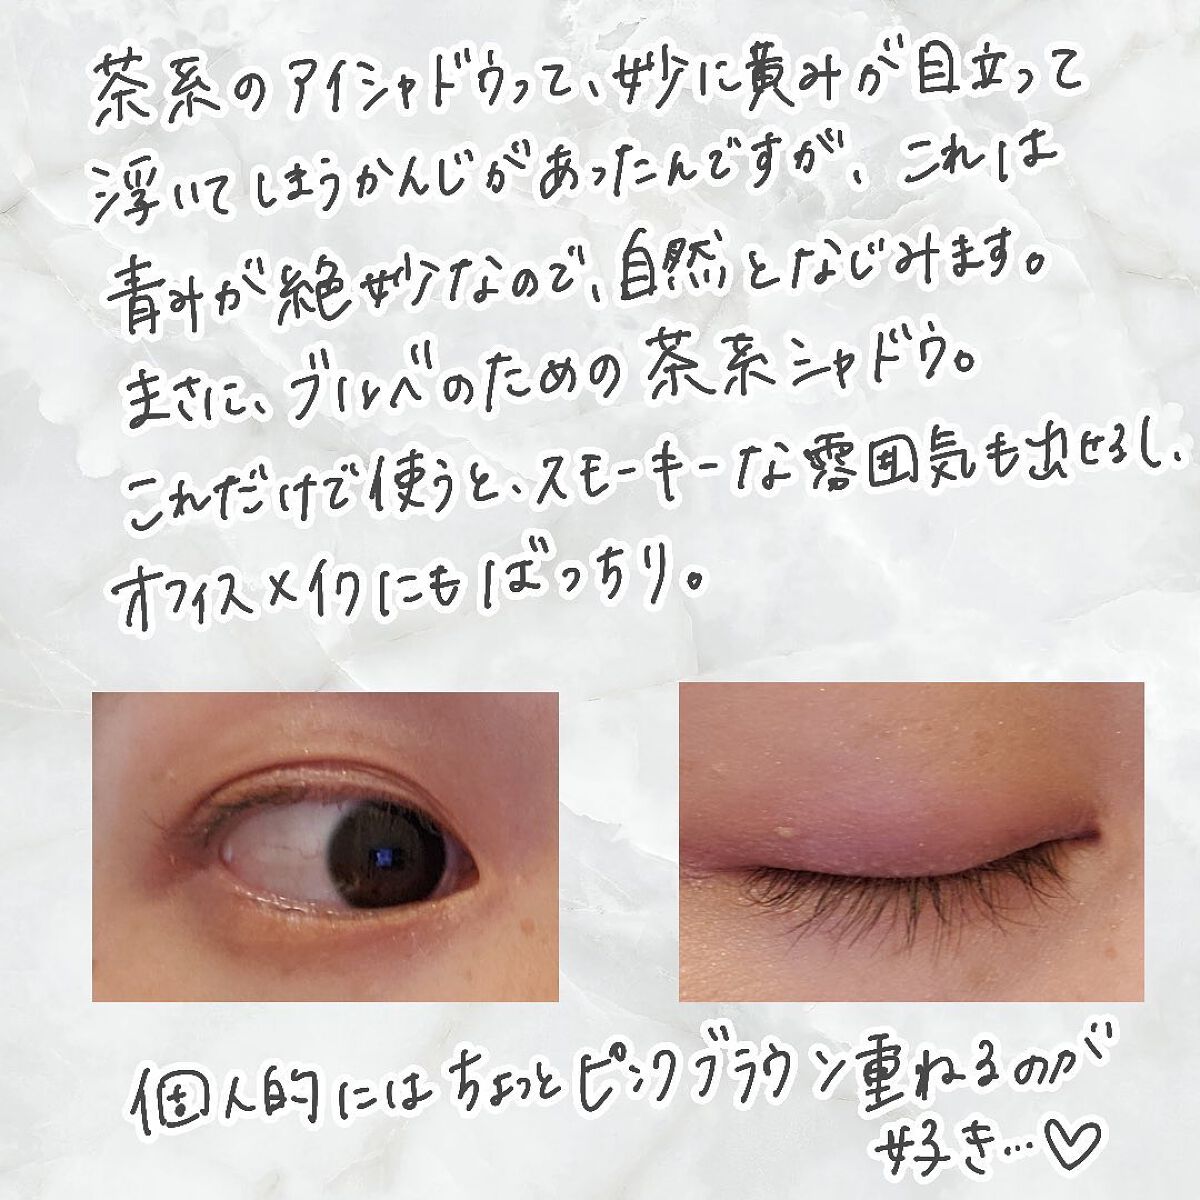 茶系のアイシャドウって、妙に黄みが目立って
浮いてしまうかんじがあったんですが、これは
青みが絶妙なので、自然となじみます。
まさに、ブルベのための茶系シャドウ。
これだけで使うと、スモーキーな雰囲気も出せるし、
オフィスメイクにもばっちり。
個人的にはちょっとピンクブラウン重ねるのが
好き…♡